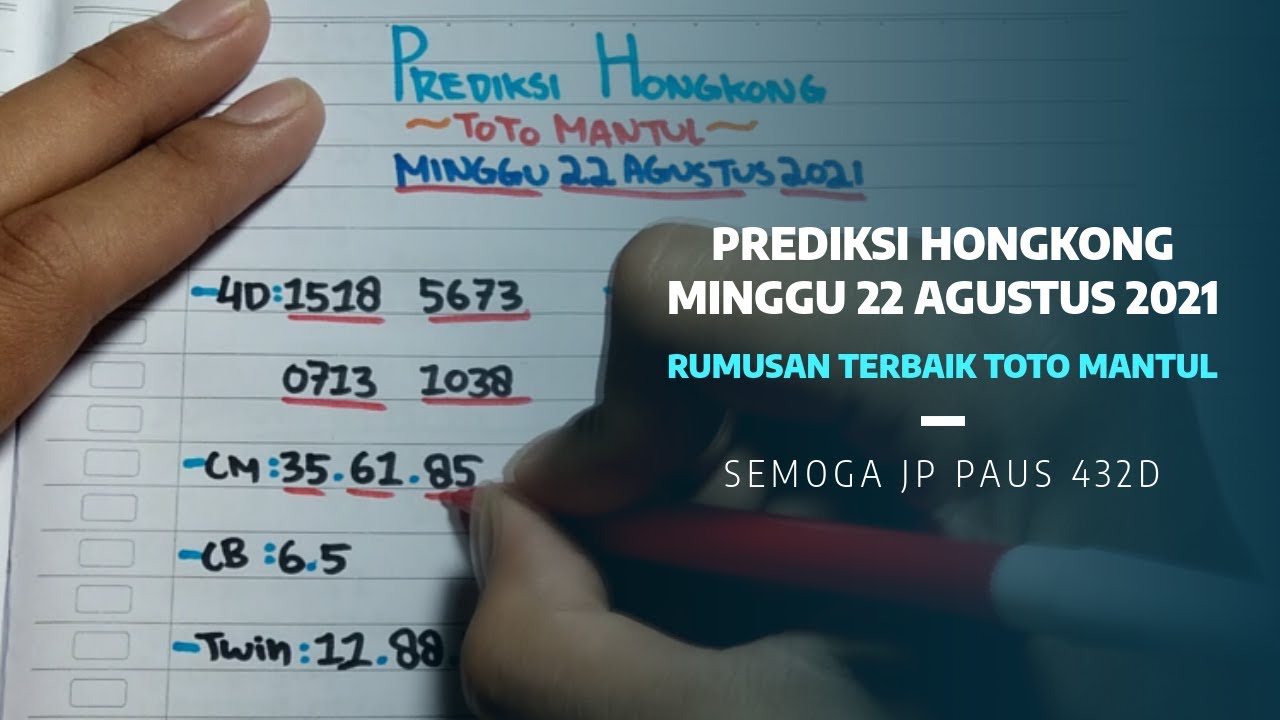 PREDIKSI HONGKONG
~TOTO MANTUL~
MINGGU 22 AGUSTUS 2021
-4D:1518 5673
0713 1038
-CM:35.61.85
-CB:6.5
-Twin:11.88
PREDIKSI HONGKONG
MINGGU 22 AGUSTUS 2021
RUMUSAN TERBAIK TOTO MANTUL
SEMOGA JP PAUS 432D